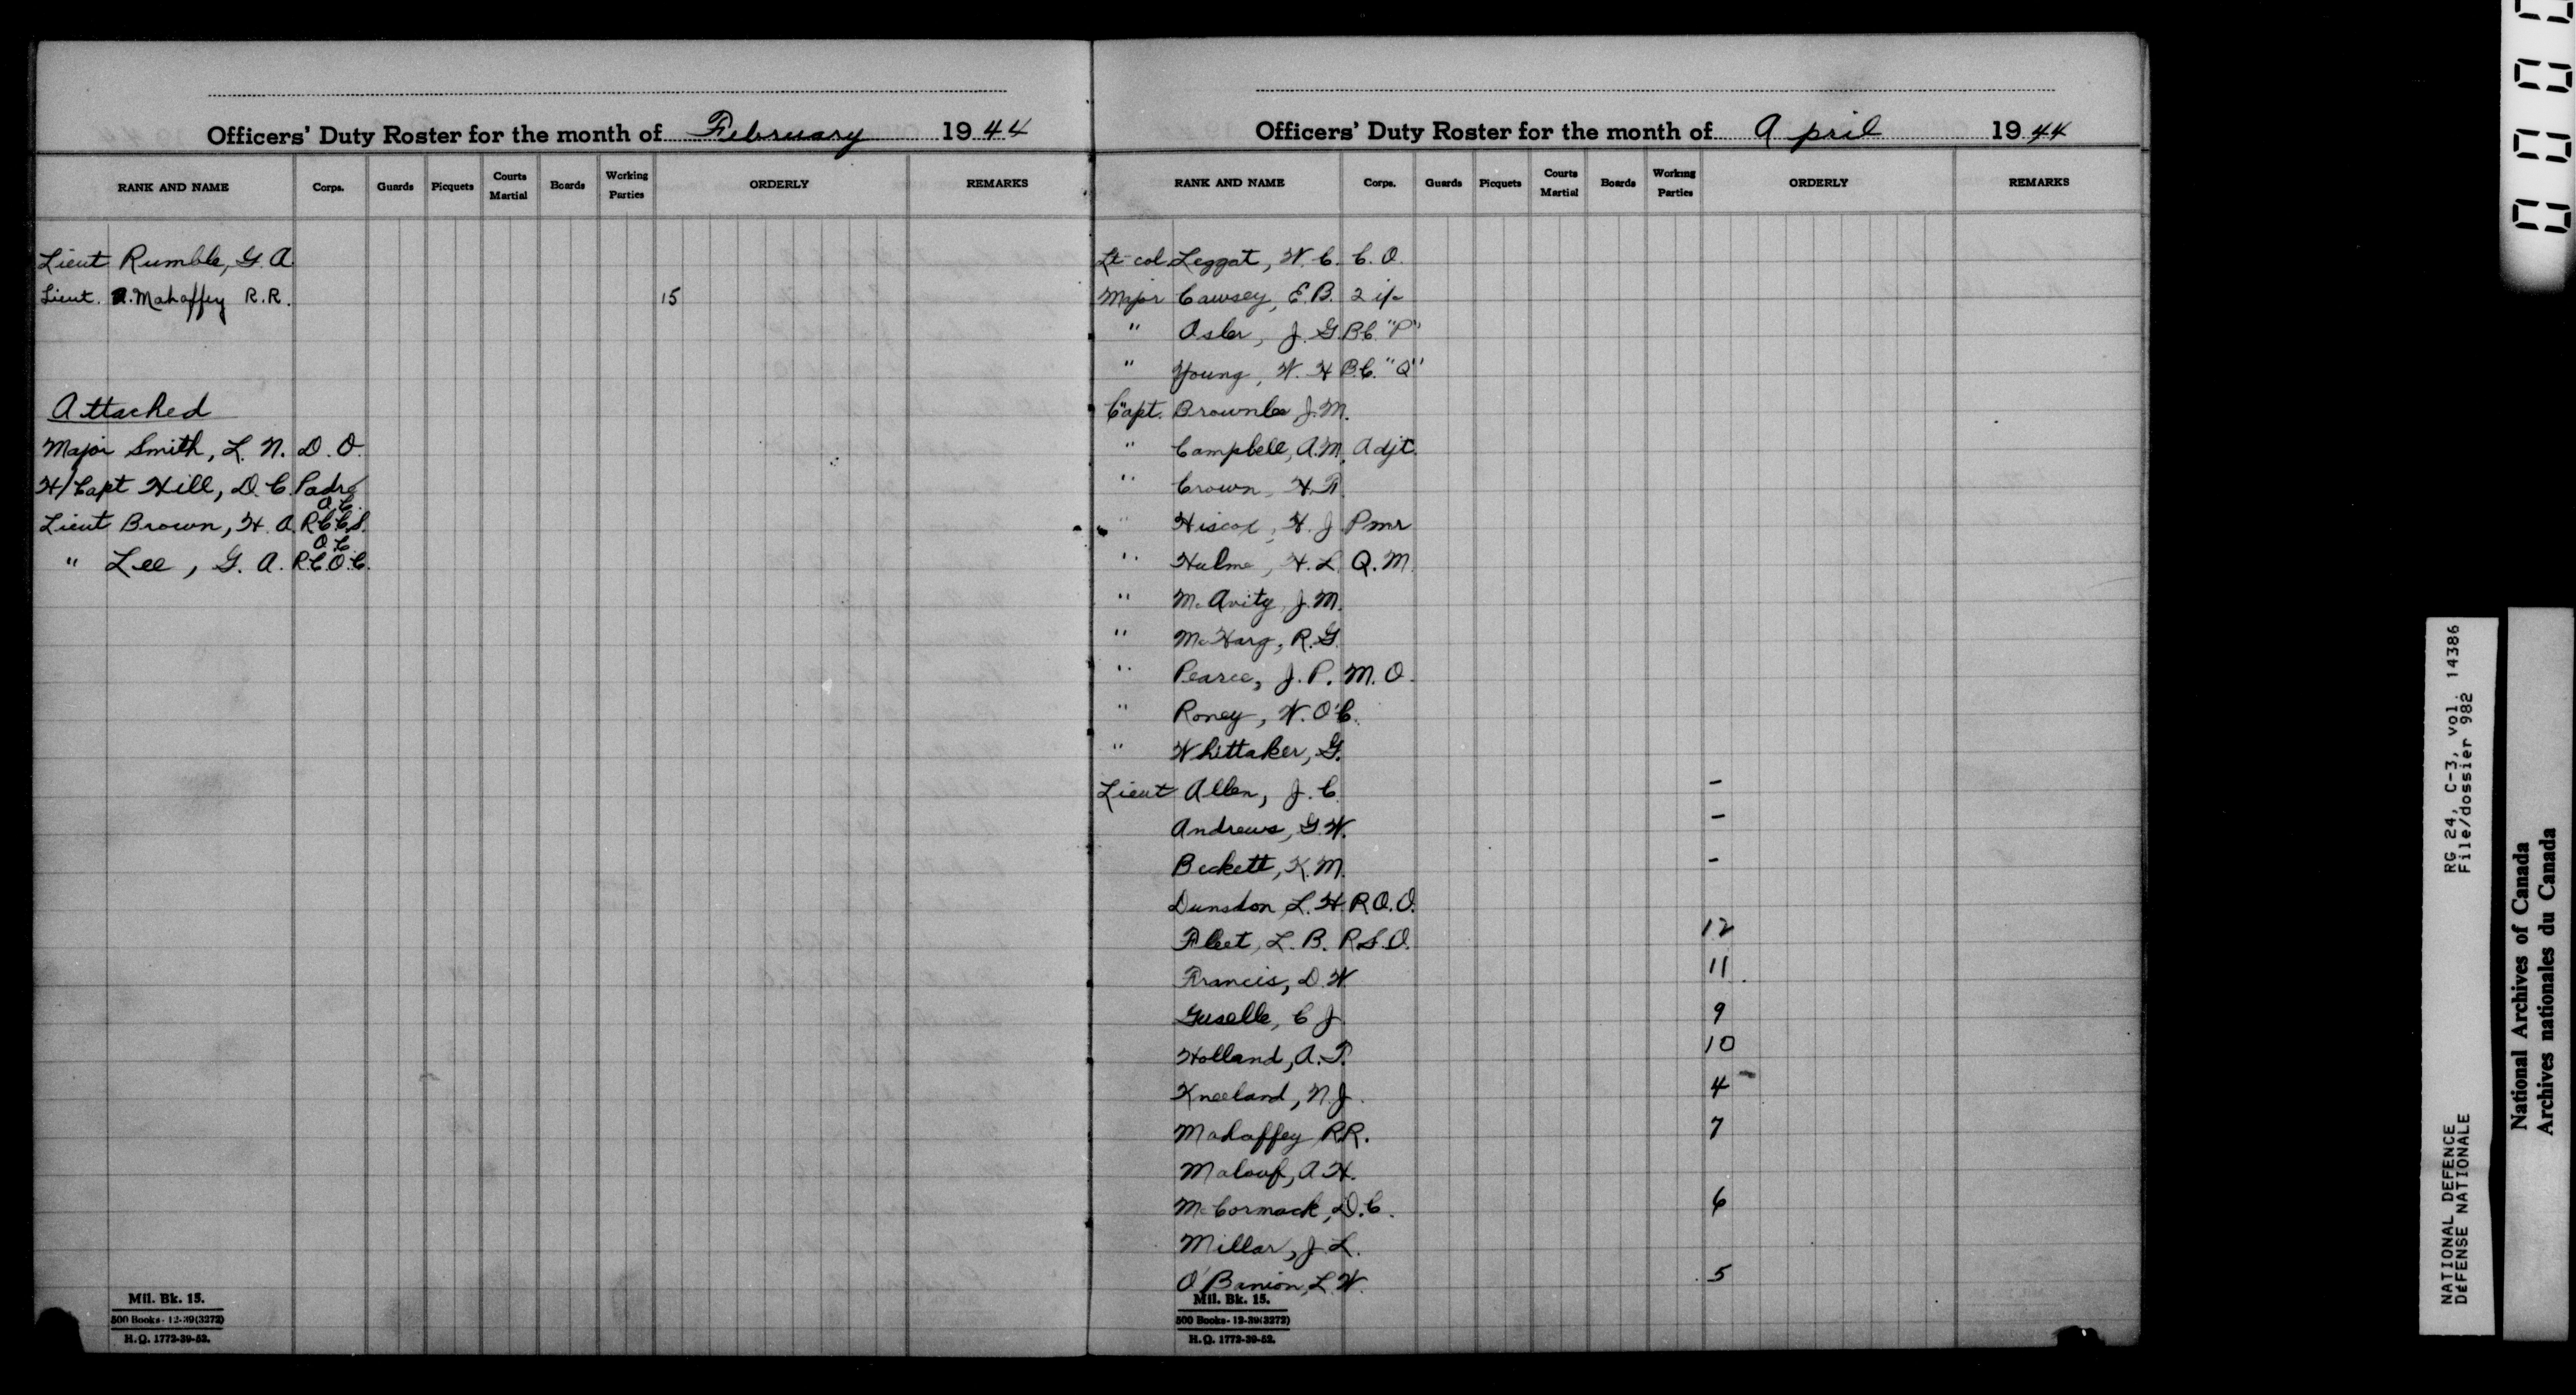 Officers' Duty Roster for the month of February 1944
RANK AND NAME Corps. Guards Picquets Courts Martial Boards Working Parties ORDERLY REMARKS
Lieut Rumble, G. A.
Lieut. Mahaffey R.R. 15
Attached
Major Smith, L. N. D. O.
H/Capt Hill, D. C. Padre
O.C.
Lieut Brown, H. A. R.C.C.S.
O.C.
" Lee, G. A. R.C.O.C.
Mil. Bk. 15.
500 Books - 12-39(3272)
H.Q. 1772-39-52.
Officers' Duty Roster for the month of April 1944
RANK AND NAME Corps. Guards Picquets Courts Martial Boards Working Parties ORDERLY REMARKS
Lt-col Leggat, W. C. C. O.
Major Cawsey, E. B. 2 i/c
" Osler, J. G. B.C. "P"
" Young, W. H B.C. "Q"
Capt. Brownlee J. M.
" Campbell, A. M. Adjt.
" Crown, H. F.
" Hiscox, H. J Pmr
" Hulme, H. L. Q. M.
" McAvity, J. M.
" McHarg, R. G.
" Pearce, J. P. M. O.
" Roney, W. O'C.
" Whittaker, G.
Lieut Allen, J. C. -
Andrews, G. W. -
Beckett, K. M. -
Dunsdon, L. H. R.O.O.
Fleet, L. B. R.S.O. 12
Francis, D. W 11
Guselle, C J 9
Holland, A. T. 10
Kneeland, N. J. 4
Mahaffey R.R. 7
Malouf, A. H.
McCormack, D. C. 6
Millar, J. L.
O'Banion, L. W. 5
Mil. Bk. 15.
500 Books - 12-39(3272)
H.Q. 1772-39-52.
RG 24, C-3, vol. 14386
File/dossier 982
NATIONAL DEFENCE
DÉFENSE NATIONALE
National Archives of Canada
Archives nationales du Canada